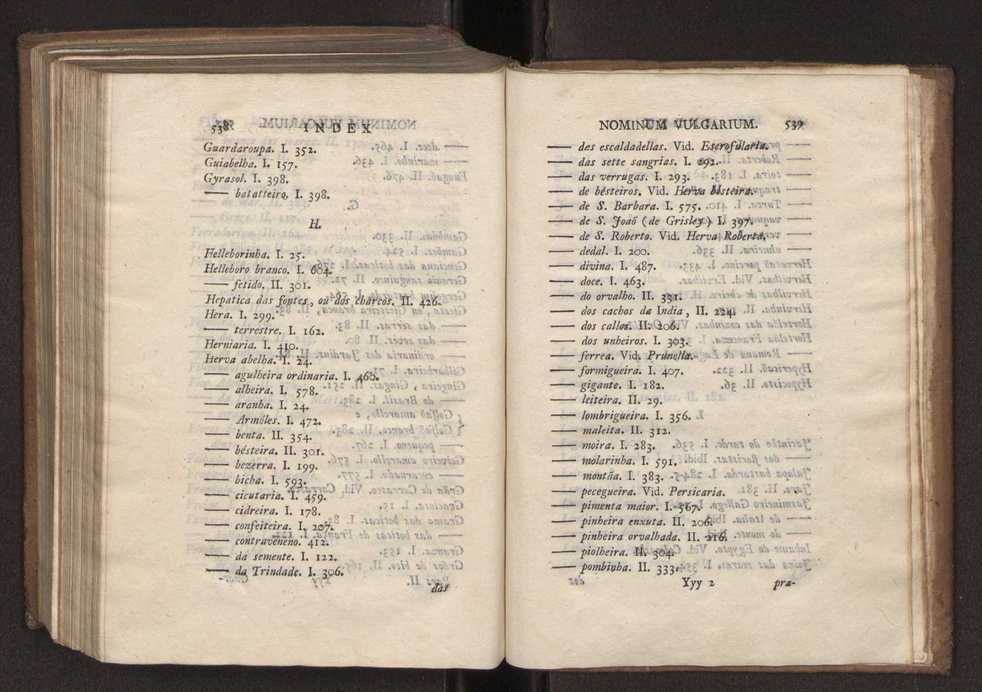 538 INDEX
Guardaroupa. I. 352.
Guiabelha. I. 157.
Gyrasol. I. 398.
—— batatteiro. I. 398.
H.
Helleborinha. I. 25.
Helleboro branco. I. 684.
—— fetido. II. 301.
Hepatica das fontes, ou dos charcos. II. 426.
Hera. I. 299.
—— terrestre. I. 162.
Herniaria. I. 410.
Herva abelha. I. 24.
—— agulheira ordinaria. I. 460.
—— alheira. I. 578.
—— aranha. I. 24.
—— Armóles. I. 472.
—— benta. II. 354.
—— bésteira. II. 301.
—— bezerra. I. 199.
—— bicha. I. 593.
—— cicutaria. I. 459.
—— cidreira. I. 178.
—— confeiteira. I. 207.
—— contraveneno. 412.
—— da semente. I. 122.
—— da Trindade. I. 306.
das
NOMINUM VULGARIUM. 539
—— des escaldadellas. Vid. Escrofularia.
—— das sette sangrias. I. 292.
—— das verrugas. I. 293.
—— de bésteiros. Vid. Herva bésteira.
—— de S. Barbara. I. 575.
—— de S. Joaõ (de Grisley) I. 397.
—— de S. Roberto. Vid. Herva Roberta.
—— dedal. I. 200.
—— divina. I. 487.
—— doce. I. 463.
—— do orvalho. II. 391.
—— dos cachos da India, II. 224.
—— dos callos. II. 206.
—— dos unheiros. I. 303.
—— ferrea. Vid. Prunella.
—— formigueira. I. 407.
—— gigante. I. 182.
—— leiteira. II. 29.
—— lombrigueira. I. 356.
—— maleita. II. 312.
—— moira. I. 283.
—— molarinha. I. 591.
—— montãa. I. 383.
—— pecegueira. Vid. Persicaria.
—— pimenta maior. I. 567.
—— pinheira enxuta. II. 206.
—— pinheira orvalhada. II. 216.
—— piolheira. II. 304.
—— pombinha. II. 333.
Yyy 2 pra-